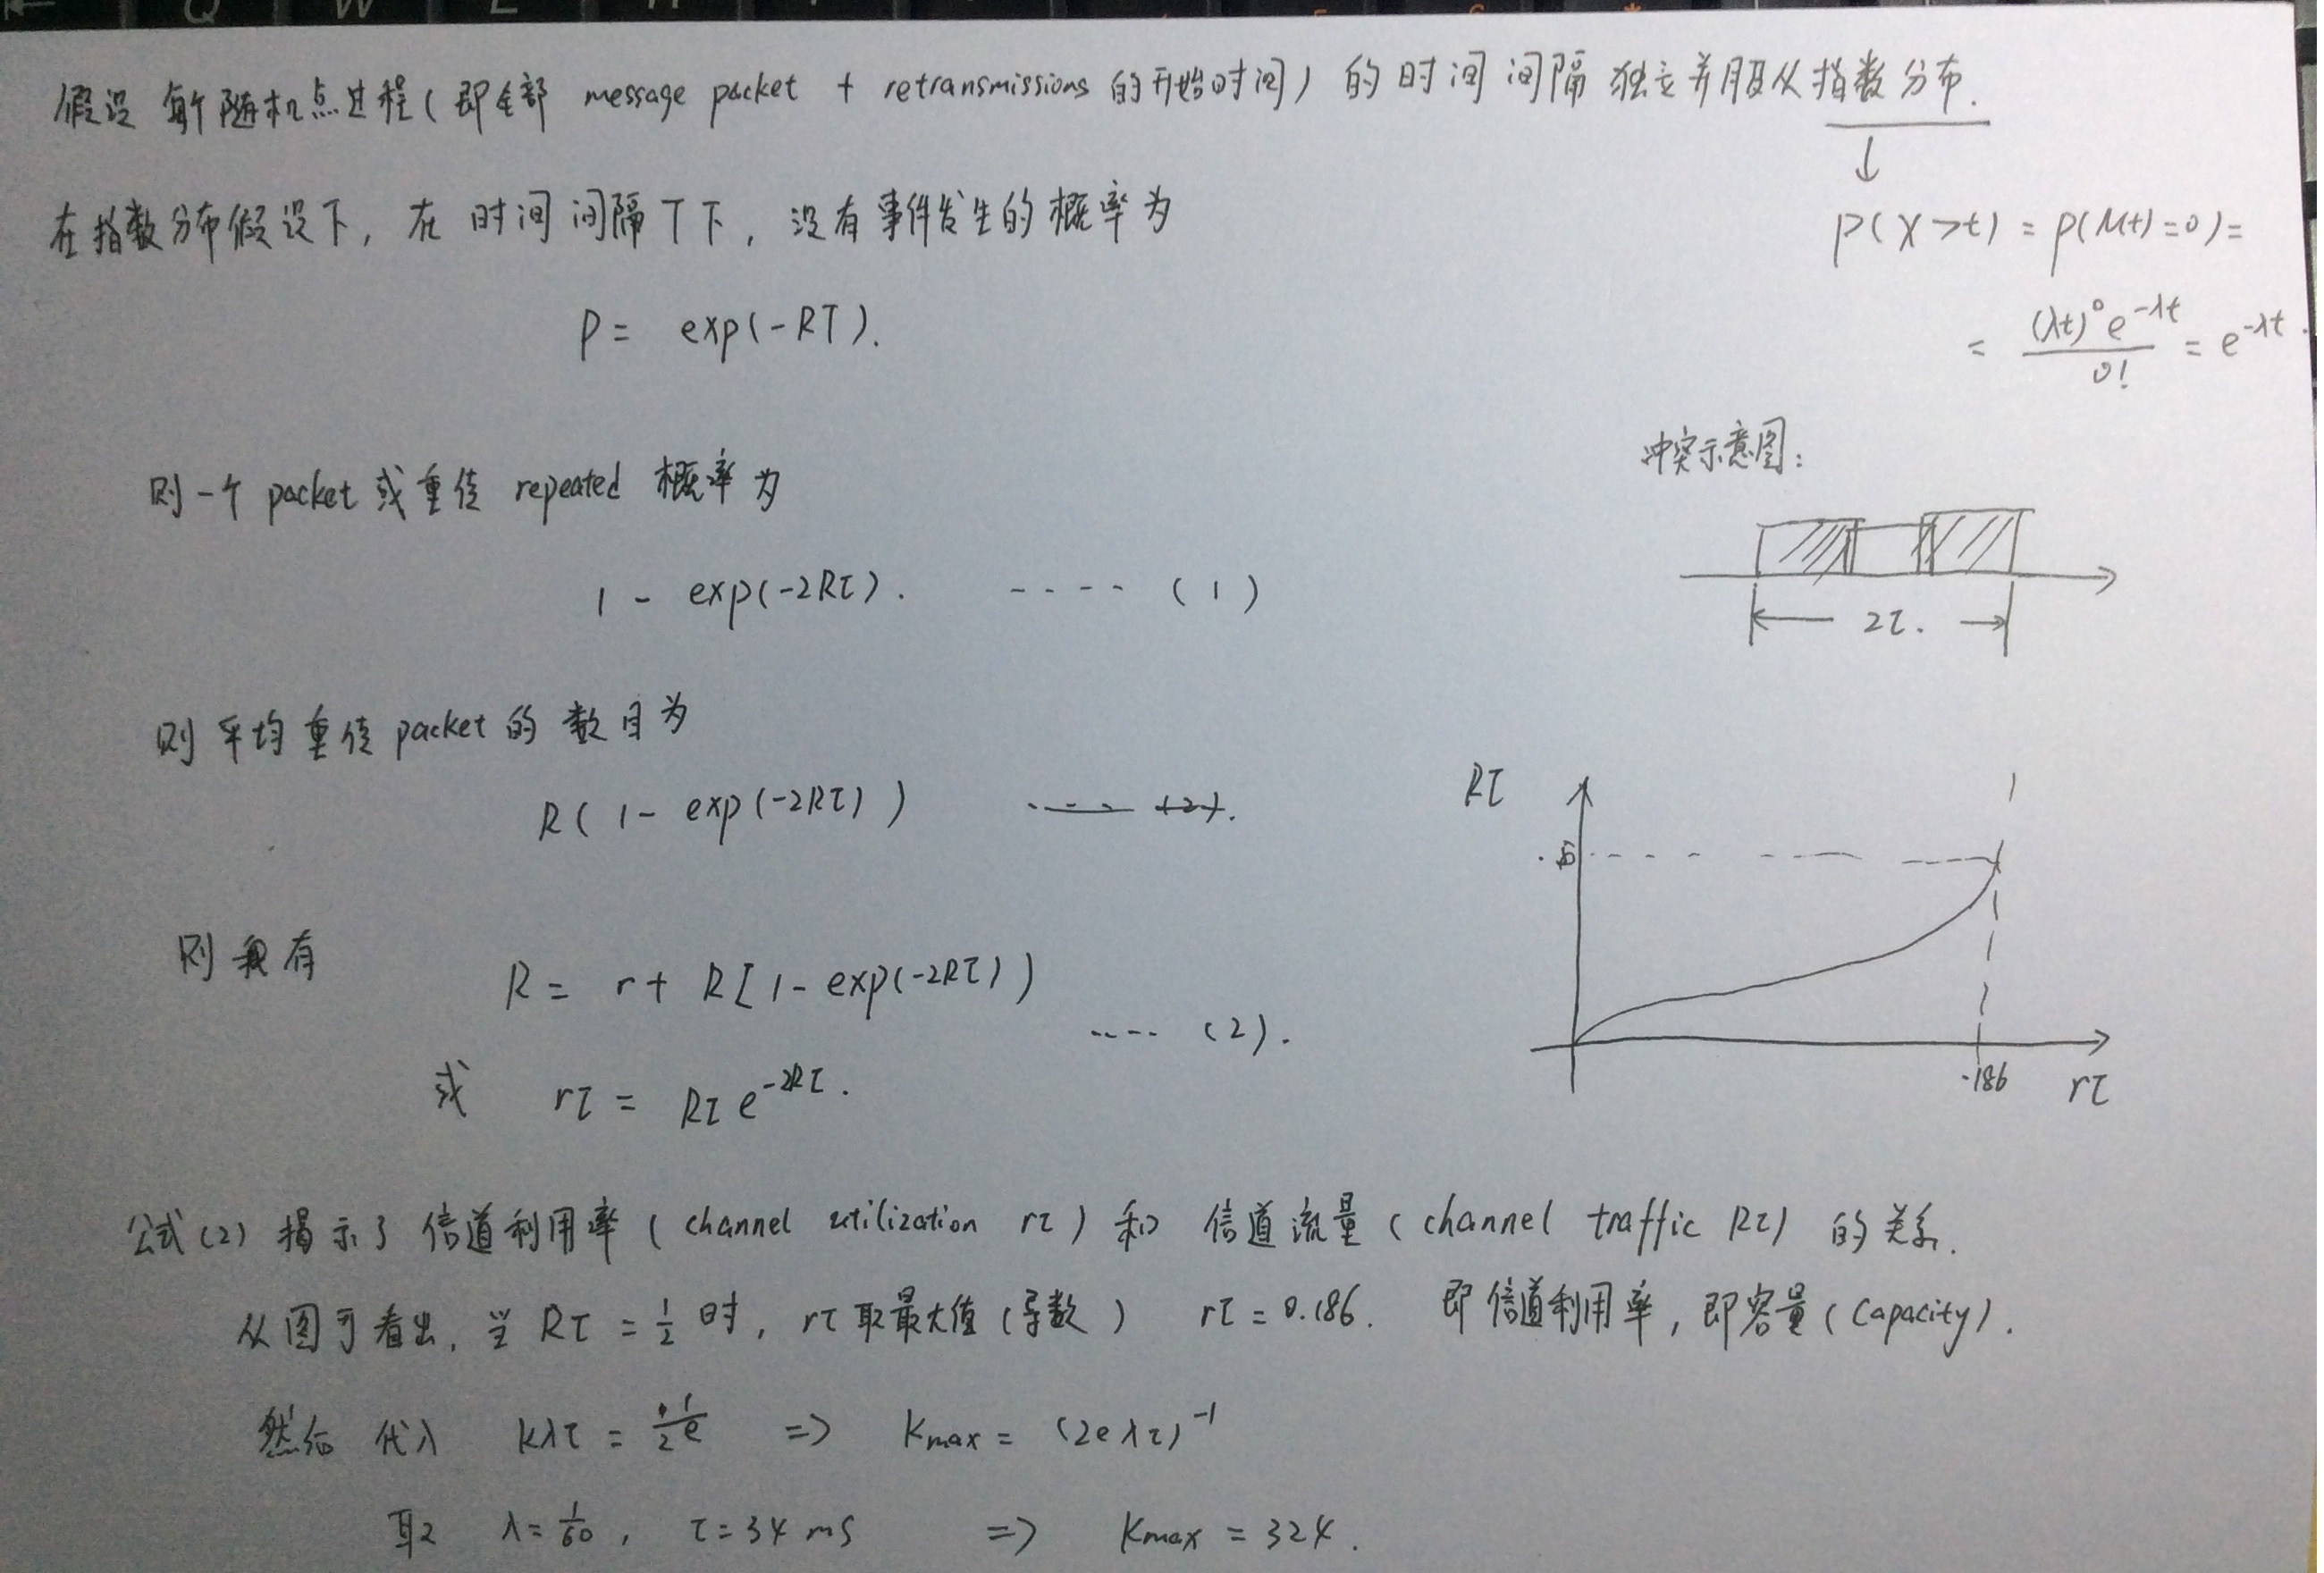 假设 每个随机点过程(即全部 message packet + retransmissions 的开始时间) 的时间间隔独立并服从指数分布.
在指数分布假设下, 在时间间隔T下, 没有事件发生的概率为
P(X>t) = P(N(t)=0) =
= \frac{(λt)^0 e^{-λt}}{0!} = e^{-λt}.
P = exp(-RT).
冲突示意图:
2τ.
则一个 packet 或重传 repeated 概率为
1 - exp(-2Rτ). ---- (1)
则平均重传 packet 的数目为
R(1 - exp(-2Rτ))
则有
R = r + R[1 - exp(-2Rτ)]
---- (2).
或 rτ = Rτ e^{-2Rτ}.
Rτ
.5
.186
rτ
公式(2) 揭示了信道利用率 (channel utilization rτ) 和 信道流量 (channel traffic Rτ) 的关系.
从图可看出, 当 Rτ = \frac{1}{2} 时, rτ 取最大值 (导数) rτ = 0.186. 即信道利用率, 即容量 (Capacity).
然后 代入 kλτ = \frac{1}{2e} => Kmax = (2eλτ)^{-1}
取 λ = \frac{1}{60}, τ = 34 ms => Kmax = 324.